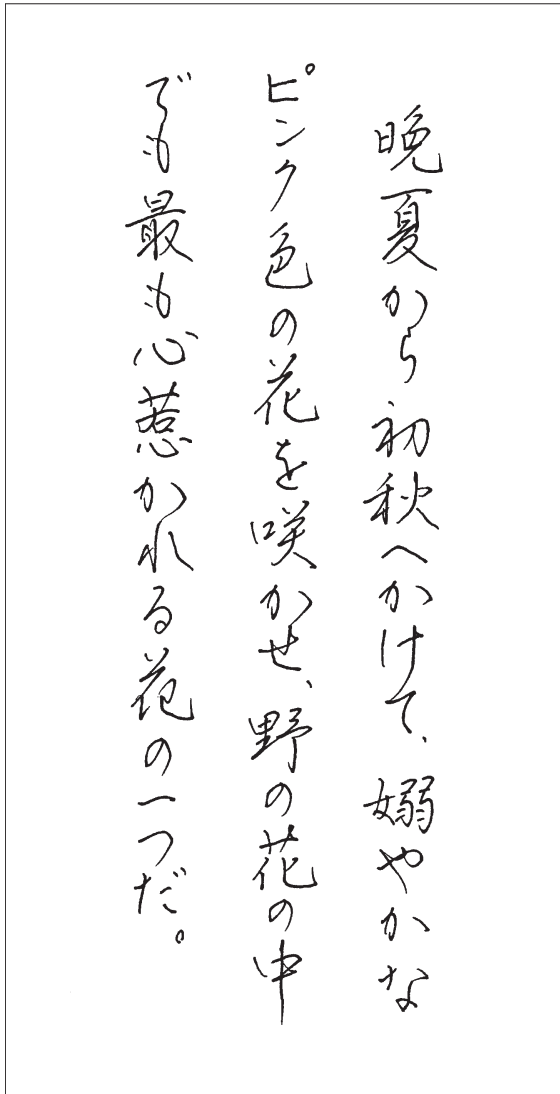 晩夏から初秋へかけて、嫋やかな
ピンク色の花を咲かせ、野の花の中
でも最も心惹かれる花の一つだ。